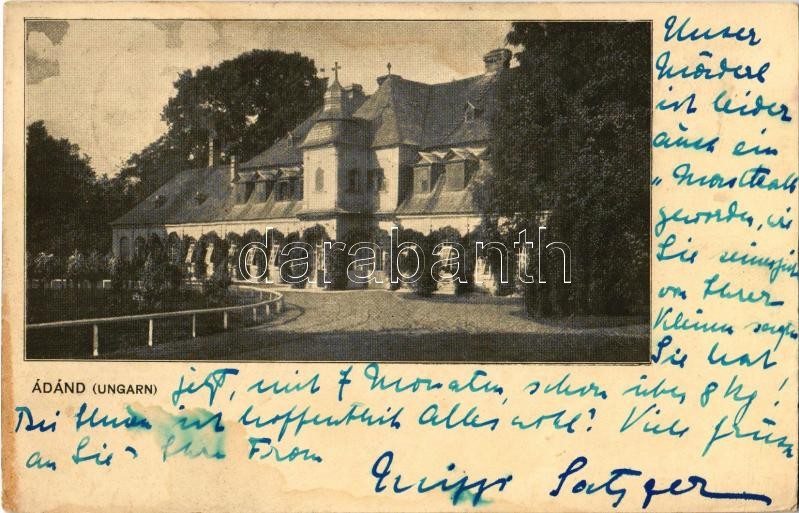 Unser
Mäderl
ist leider
auch ein
geworden, wie
Sie seinerzeit
von Ihrer
Kleinen sagten
Sie hat
darabanth
ÁDÁND (UNGARN)
jetzt, mit 7 Monaten, schon über 8 kg!
Bei Ihnen ist hoffentlich Alles wohl? Viele Grüsse
an Sie & Ihre Frau
Satzger